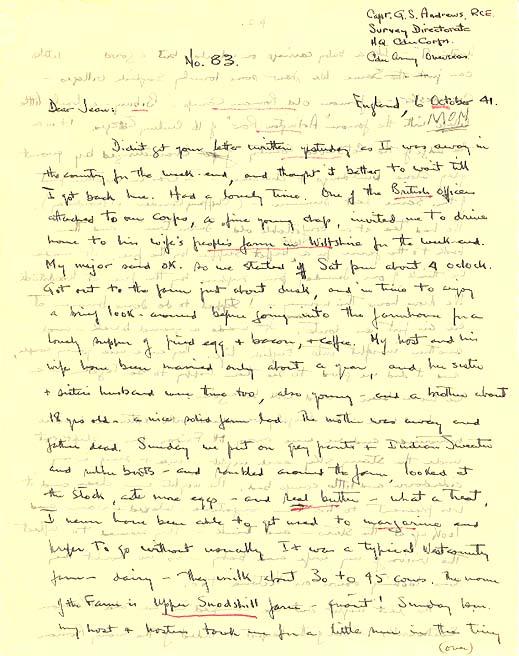 Capt. G.S. Andrews, RCE.
Survey Directorate
HQ Cdn Corps.
Cdn Army Overseas.
No. 83.
England, 6 October 41.
MOM
Dear Jean:
Didn't get your letter written yesterday as I was away in
the country for the week-end, and thought it better to wait till
I got back here. Had a lovely time. One of the British officers
attached to our corps, a fine young chap, invited me to drive
home to his wife's people's farm in Wiltshire for the week-end.
My major said OK. so we started off Sat pm about 4 oclock.
Got out to the farm just about dusk, and in time to enjoy
a brief look-around before going into the farmhouse for a
lovely supper of fried egg + bacon, + coffee. My host and his
wife have been married only about a year, and her sister
+ sister's husband were there too, also young - and a brother about
18 yrs old - a nice solid farm lad. The mother was away and
father dead. Sunday we put on grey pants + Indian Sweater
and rubber boots - and rambled around the farm, looked at
the stock, ate more eggs - and real butter - what a treat,
I never have been able to get used to margarine and
prefer to go without usually. It was a typical West country
farm - dairy - They milk about 30 to 45 cows. The name
of the Farm is Upper Snodshill farm - quaint! Sunday
my host + hostess took me for a little run in the tiny
(over)